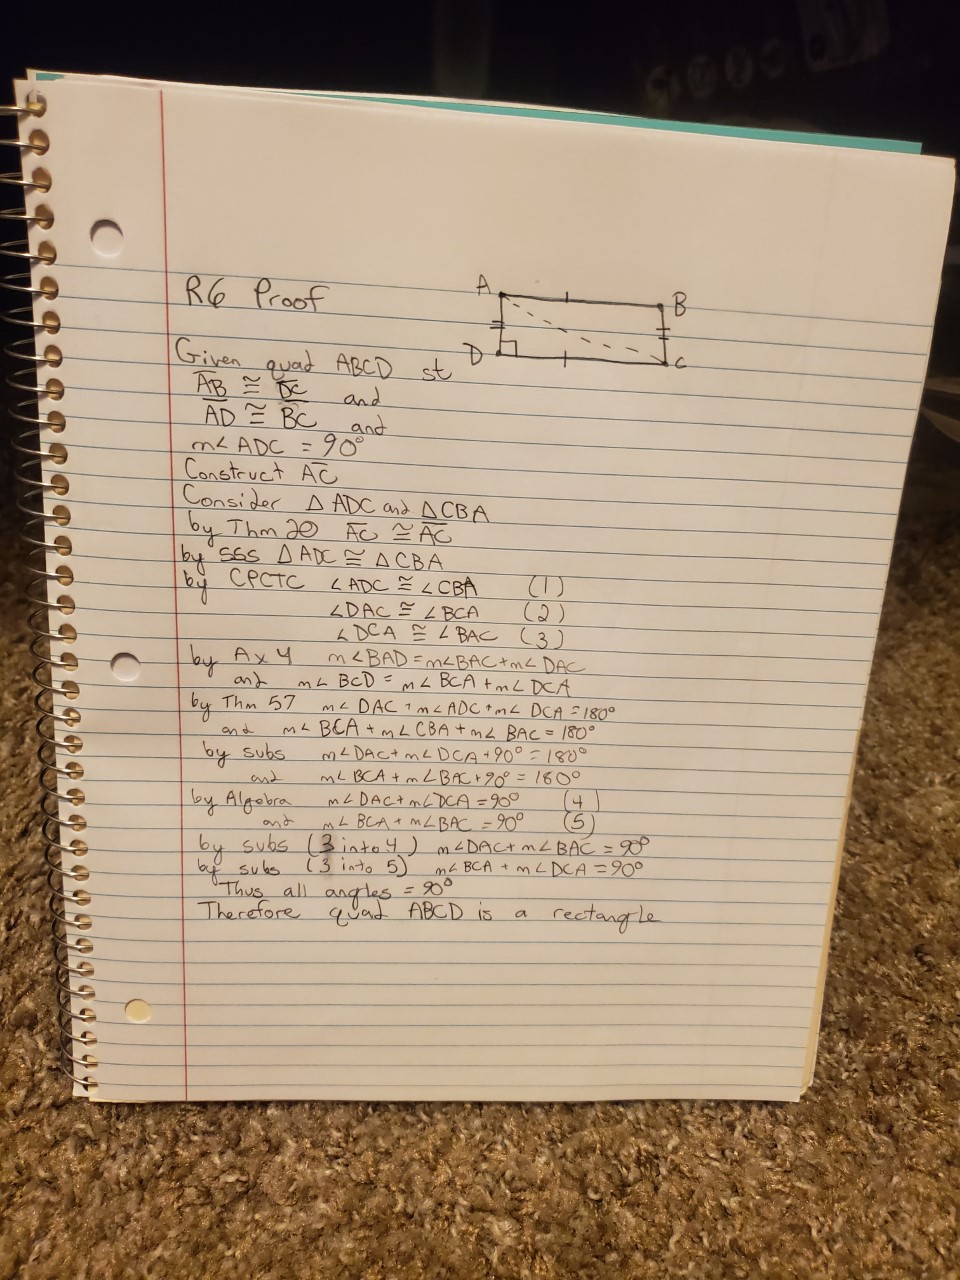 R6 Proof
A
B
D
C
Given quad ABCD st
A̅B̅ ≅ D̅C̅ and
A̅D̅ ≅ B̅C̅ and
m∠ ADC = 90°
Construct A̅C̅
Consider △ ADC and △CBA
by Thm 20 A̅C̅ ≅ A̅C̅
by SSS △ ADC ≅ △ CBA
by CPCTC ∠ADC ≅ ∠CBA (1)
∠DAC ≅ ∠BCA (2)
∠DCA ≅ ∠BAC (3)
by Ax 4 m∠BAD = m∠BAC + m∠DAC
and m∠ BCD = m∠ BCA + m∠ DCA
by Thm 57 m∠ DAC + m∠ADC + m∠ DCA = 180°
and m∠ BCA + m∠ CBA + m∠ BAC = 180°
by subs m∠DAC + m∠DCA + 90° = 180°
and m∠ BCA + m∠BAC + 90° = 180°
by Algebra m∠DAC + m∠DCA = 90° (4)
and m∠ BCA + m∠BAC = 90° (5)
by subs (3 into 4) m∠DAC + m∠BAC = 90°
by subs (3 into 5) m∠BCA + m∠DCA = 90°
Thus all angles = 90°
Therefore quad ABCD is a rectangle